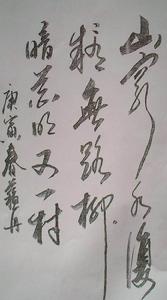 山穷水復
疑無路柳
暗花明又一村
庚寅春